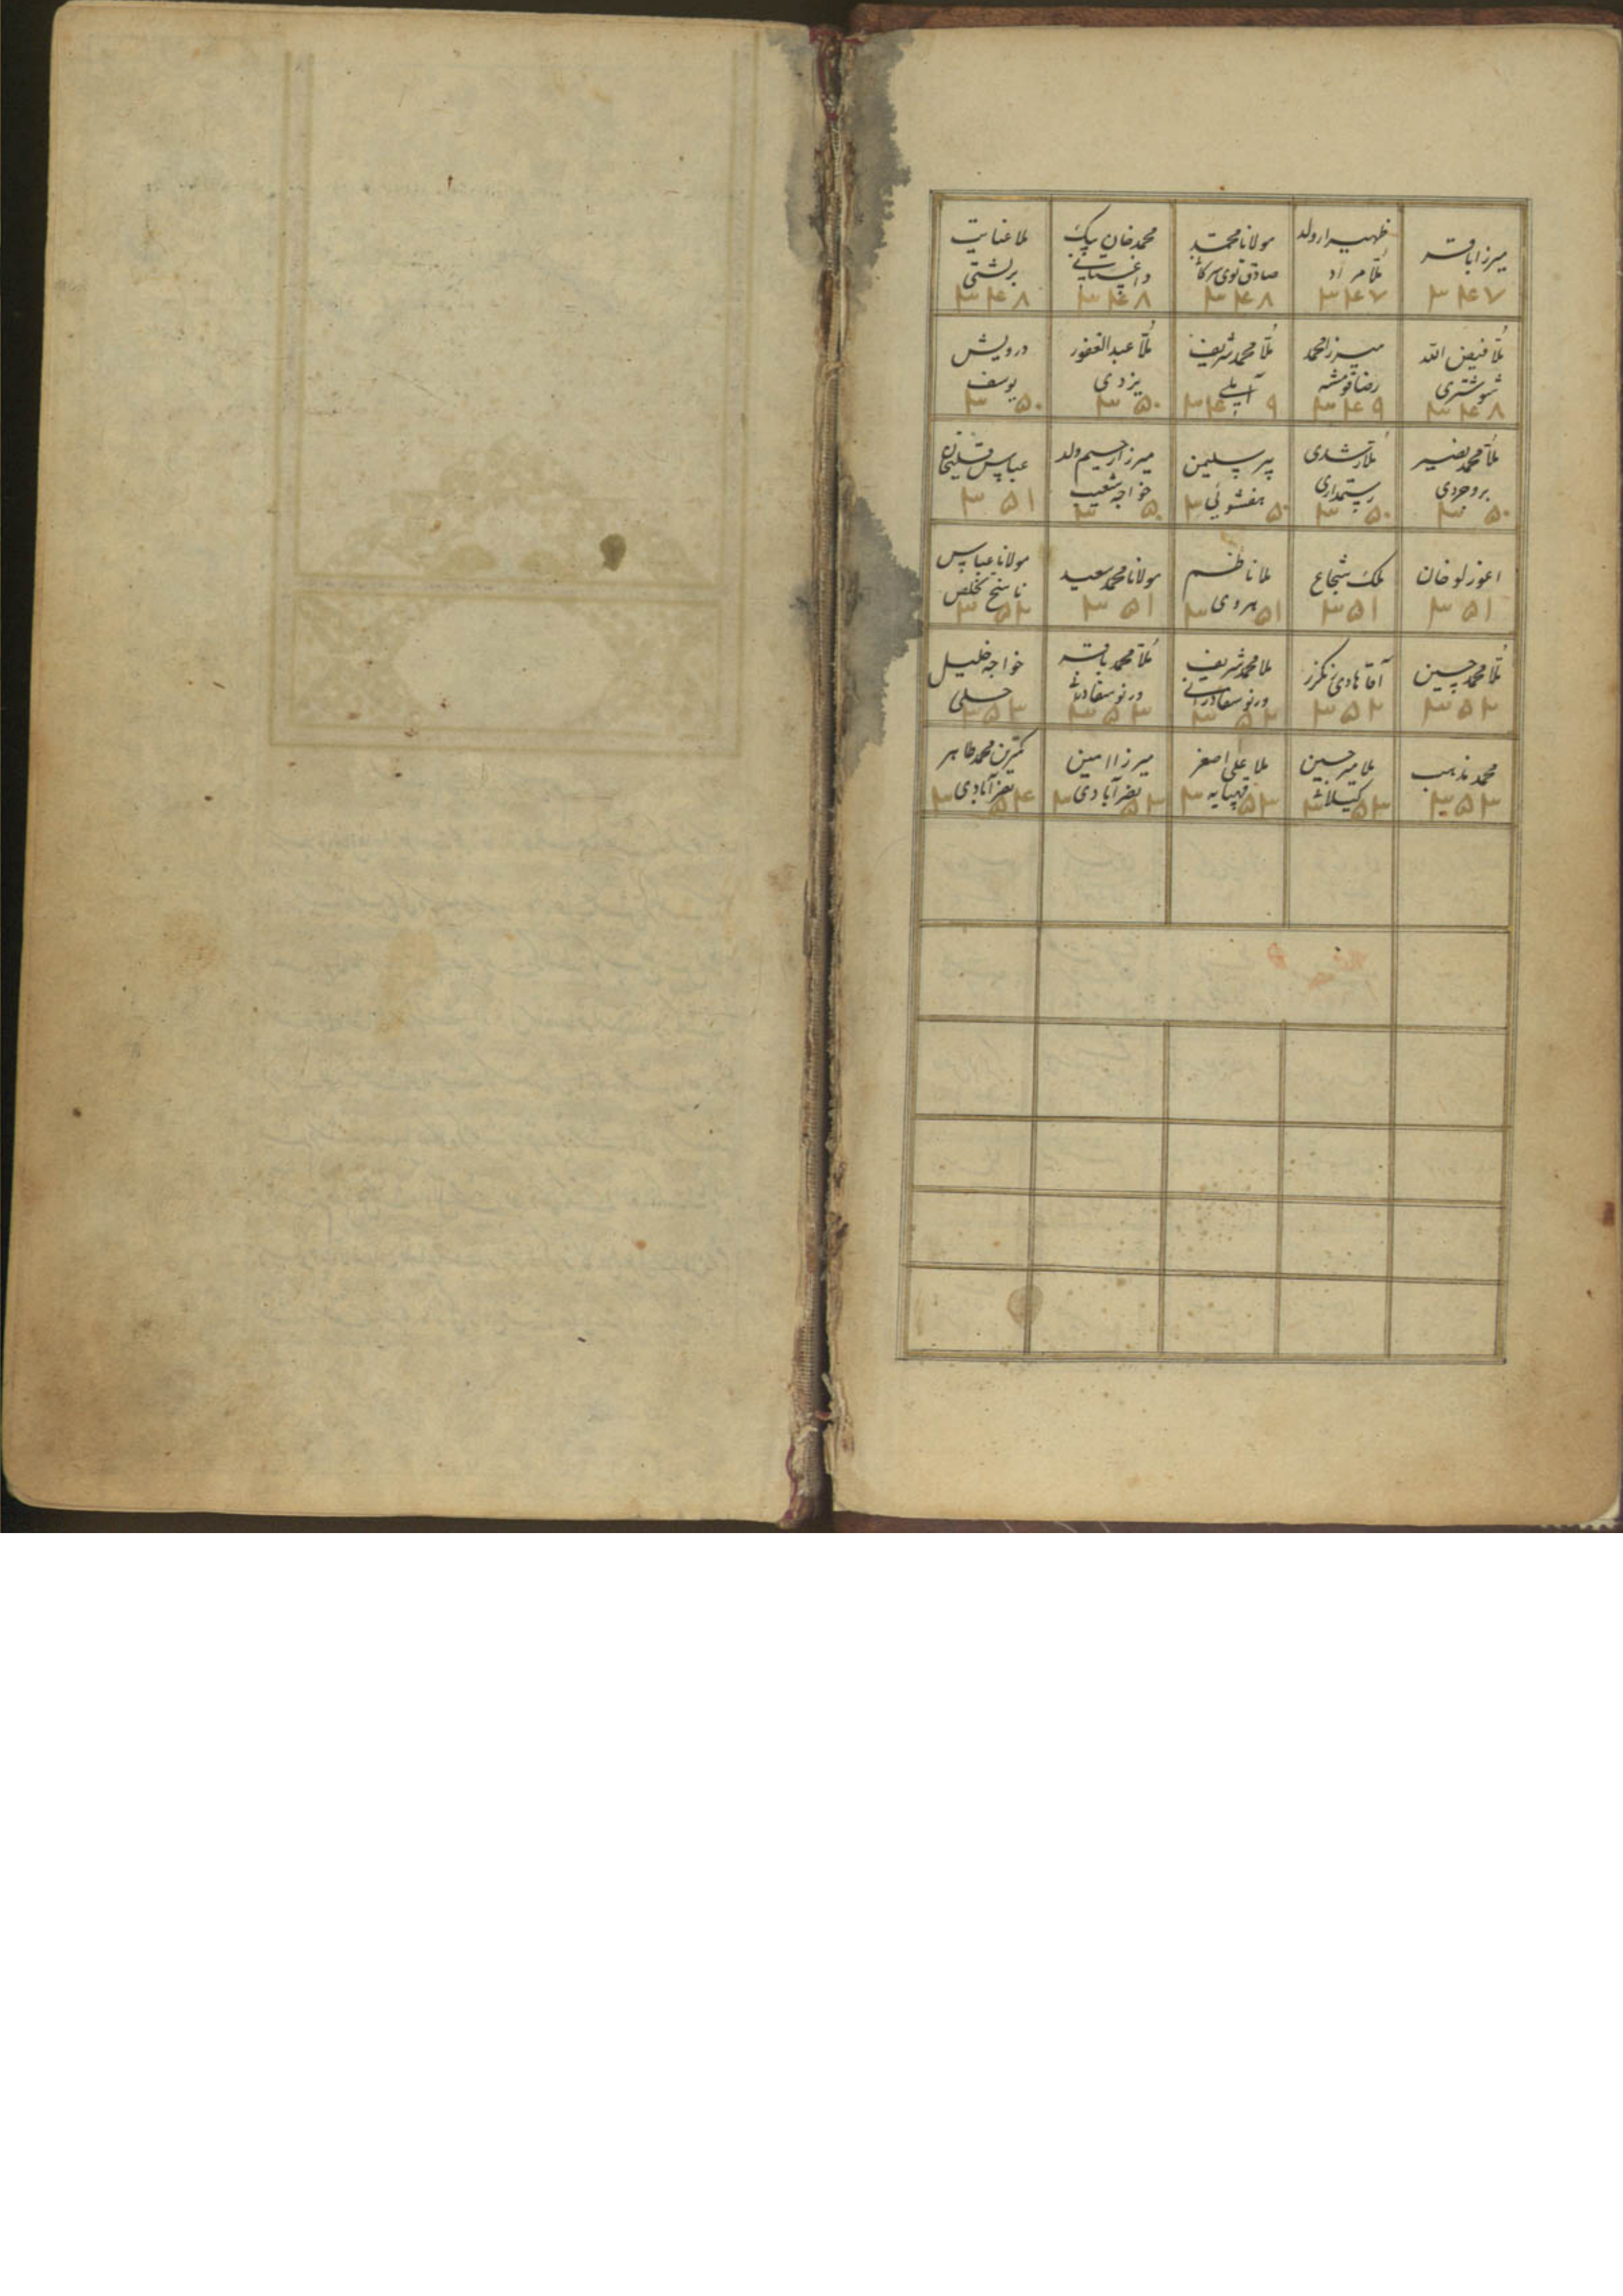 میرزا باقر
۳۴۷
ظهیرا ولد
ملا مراد
۳۴۷
مولانا محمد
صادق توی سرکا
۳۴۸
محمد خان بیک
داغستانی
۳۴۸
ملا عنایت
۳۴۸
ملا فیض الله
شوشتری
۳۴۸
میرزا محمد
رضا قومشه
۳۴۹
ملا محمد شریف
۳۴۹
ملا عبدالغفور
یزدی
۳۵۰
درویش
یوسف
۳۵۰
ملا محمد نصیر
بروجردی
۳۵۰
ملا رشدی
رستمداری
۳۵۰
پیر سلیمن
هفشوئی
۳۵۰
میرزا رحیم ولد
خواجه شعیب
۳۵۰
عباس قلیخان
۳۵۱
اغورلو خان
۳۵۱
ملک شجاع
۳۵۱
ملا ناظم
هروی
۳۵۱
مولانا محمد سعید
۳۵۱
مولانا عباس
ناسخ تخلص
۳۵۲
ملا محمد حسین
۳۵۲
آقا هادی
۳۵۲
ملا محمد شریف
ورنوسفادرانی
۳۵۲
ملا محمد باقر
ورنوسفادرانی
۳۵۳
خواجه خلیل
۳۵۳
محمد مذهب
۳۵۳
ملا میر حسین
۳۵۳
ملا علی اصغر
قهپایه
۳۵۳
میرزا امین
نصرآبادی
۳۵۳
کمترین محمد طاهر
نصرآبادی
۳۵۴